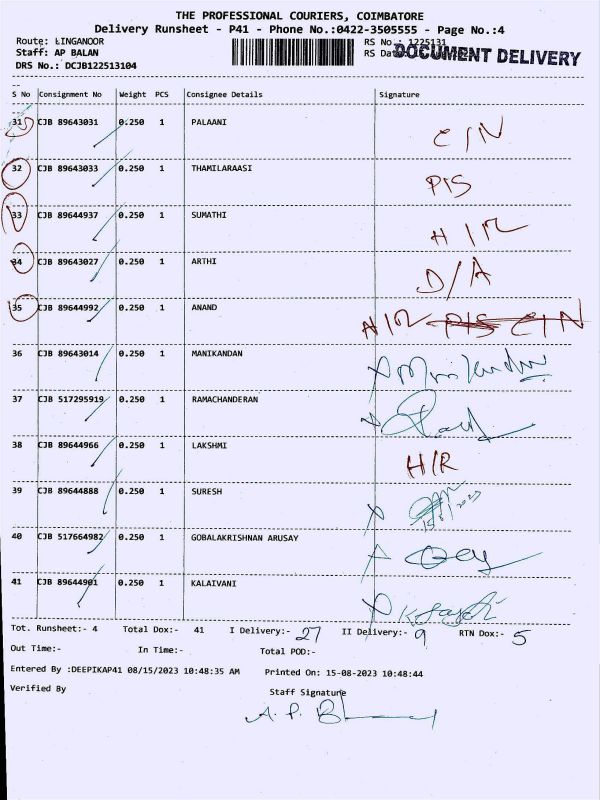 THE PROFESSIONAL COURIERS, COIMBATORE
Delivery Runsheet - P41 - Phone No.:0422-3505555 - Page No.:4
Route: LINGANOOR RS No.: 1225131
Staff: AP BALAN RS Dat DOCUMENT DELIVERY
DRS No.: DCJB122513104
S No Consignment No Weight PCS Consignee Details Signature
31 CJB 89643031 0.250 1 PALAANI C/N
32 CJB 89643033 0.250 1 THAMILARAASI P/S
33 CJB 89644937 0.250 1 SUMATHI H/R
34 CJB 89643027 0.250 1 ARTHI D/A
35 CJB 89644992 0.250 1 ANAND H/R P/S C/N
36 CJB 89643014 0.250 1 MANIKANDAN
37 CJB 517295919 0.250 1 RAMACHANDERAN
38 CJB 89644966 0.250 1 LAKSHMI H/R
39 CJB 89644888 0.250 1 SURESH
40 CJB 517664982 0.250 1 GOBALAKRISHNAN ARUSAY
41 CJB 89644901 0.250 1 KALAIVANI
Tot. Runsheet:- 4 Total Dox:- 41 I Delivery:- 27 II Delivery:- 9 RTN Dox:- 5
Out Time:- In Time:- Total POD:-
Entered By :DEEPIKAP41 08/15/2023 10:48:35 AM Printed On: 15-08-2023 10:48:44
Verified By Staff Signature
A. P. B